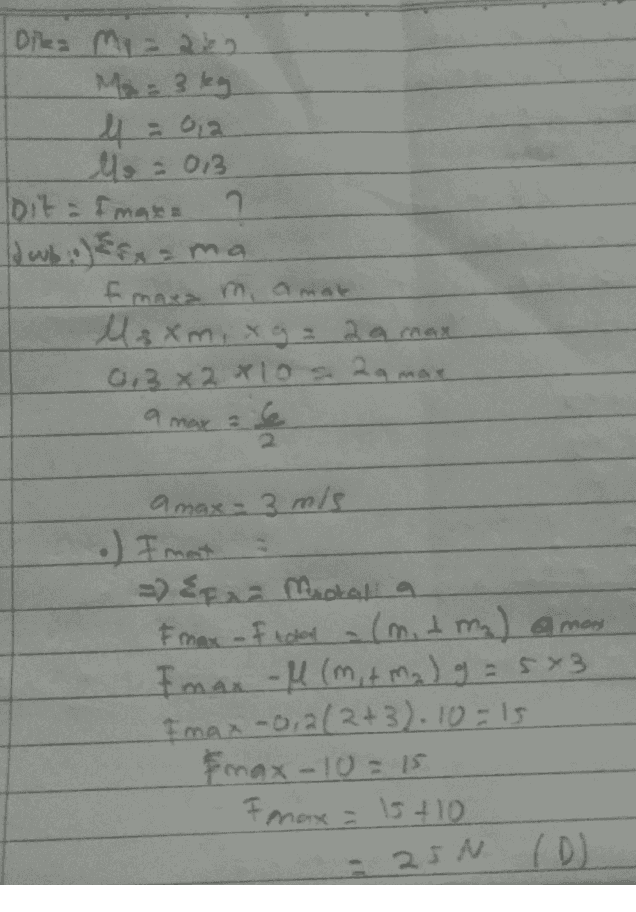 Dik = m1 = 2 kg
M2 = 3 kg
μ = 0,2
μs = 0,3
Dit = Fmax = ?
Jwb : •) ΣFx = m a
Fmax = m1 a max
μs x m1 x g = 2 a max
0,3 x 2 x 10 = 2 a max
a max = 6/2
a max = 3 m/s
•) Fmax =
=> ΣFx = Mtotal a
Fmax - F = (m1 + m2) a max
Fmax - μ (m1 + m2) g = 5 x 3
Fmax - 0,2 (2+3) . 10 = 15
Fmax - 10 = 15
Fmax = 15 + 10
= 25 N (D)